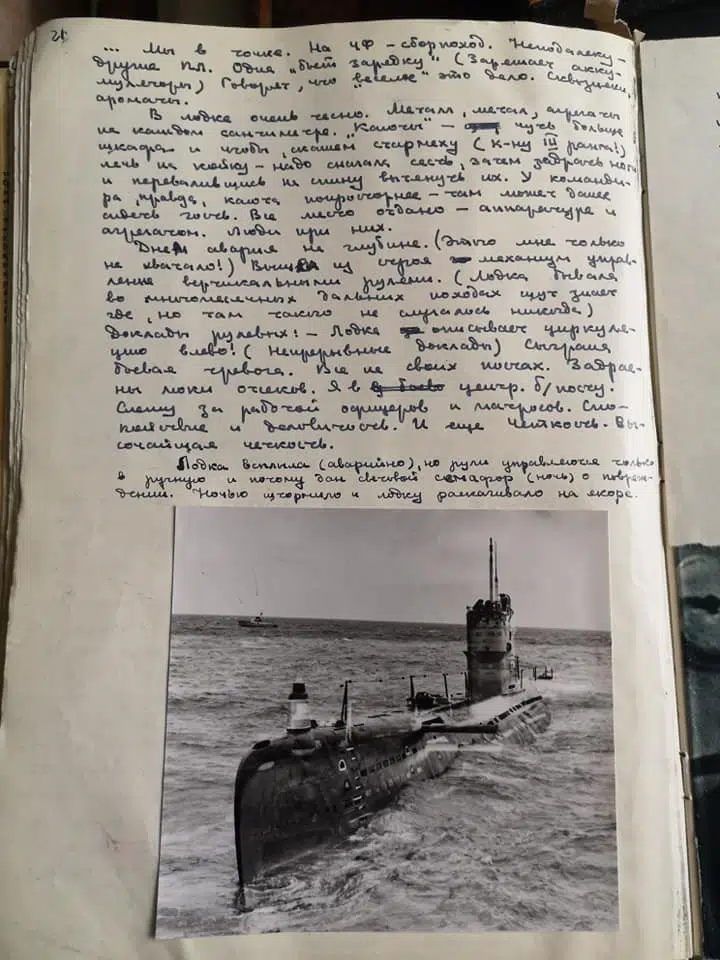 21
... Мы в точке. На ЧФ – сборпоход. Неподалеку –
другие пл. Одна „бьет зарядку" (Заряжает акку-
муляторы) Говорят, что „веселое" это дело. Сквозняки,
ароматы.
В лодке очень тесно. Металл, метал, агрегаты
на каждом сантиметре. „Каюты" – чуть больше
шкафа и чтобы, скажем старпому (к-ну III ранга!)
лечь на койку – надо сначала сесть, затем задрать ноги
и перевалившись на спину вытянуть их. У команди-
ра, правда, каюта попросторнее – там может даже
сидеть гость. Все место отдано – аппаратуре и
агрегатам. Люди при них.
Днем авария на глубине. (Этого мне только
не хватало!) Вышел из строя механизм управ-
ление вертикальными рулями. (Лодка бывала
во многомесячных дальних походах шут знает
где, но там такого не случалось никогда)
Доклады рулевых! – Лодка описывает циркуля-
цию влево! (Непрерывные доклады) Сыграна
боевая тревога. Все на своих постах. Задрае-
ны люки отсеков. Я в центр. б/посту.
Слежу за работой офицеров и матросов. Спо-
койствие и деловитость. И еще четкость. Вы-
сочайшая четкость.
Лодка всплыла (аварийно), но рули управляются только
в ручную и потому дан световой семафор (ночь) о повреж-
дении. Ночью штормило и лодку раскачивало на якоре.